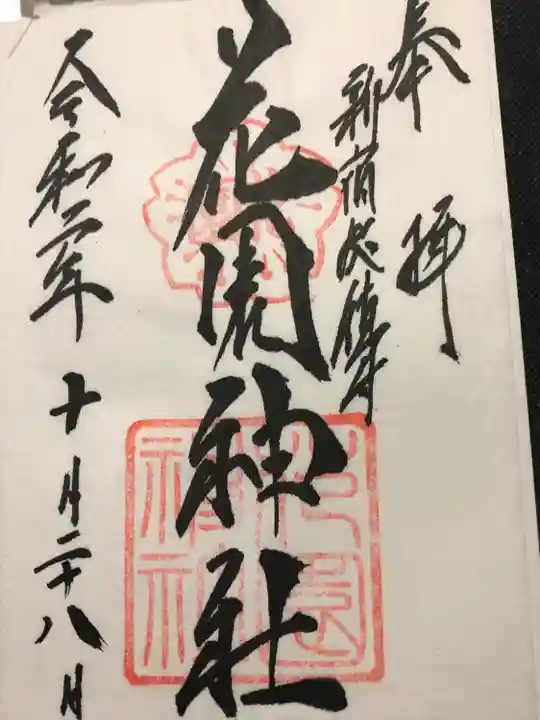 奉拝
新宿総鎮守
花園神社
令和二年十月二十八日
花園神社